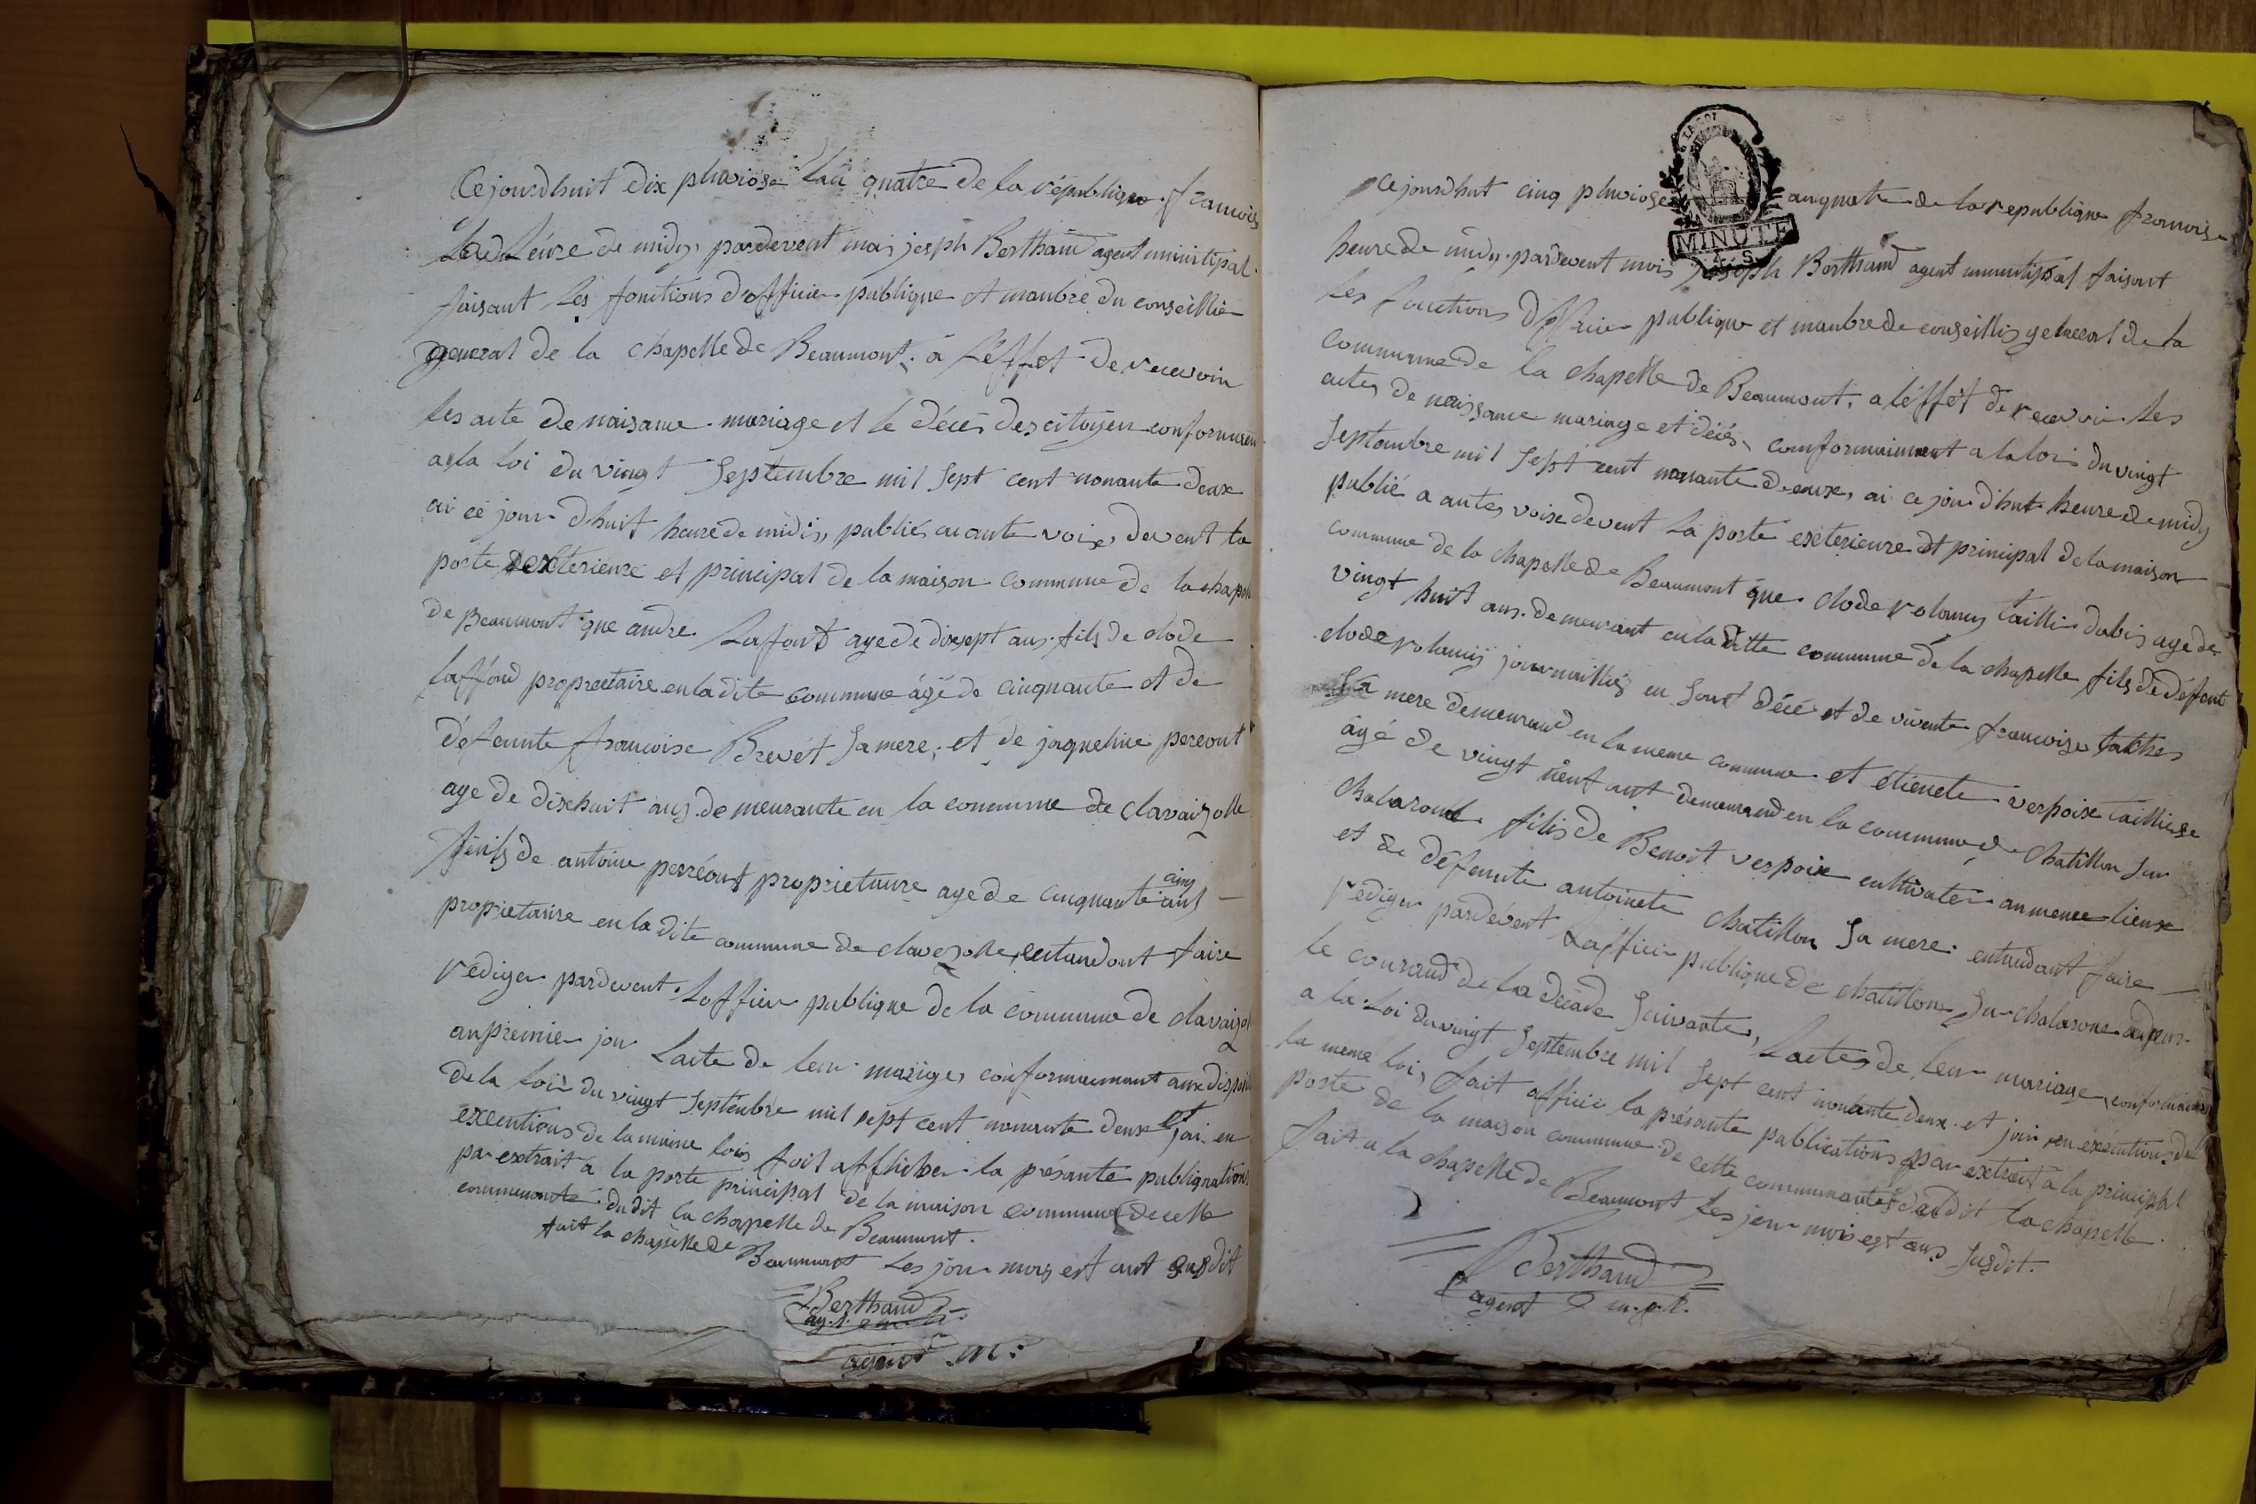 Cejourdhuit dix pluviose lan quatre de la république francoise
heure de midy, pardevent moi jesph Berthaud agent munitipal
faisant les fonitions d'officier publique et manbre du conseillie
general de la chapelle de Beaumont, a l'éffet de recevoir
les acte de naisance mariage et le décés des citoyen conformem
a la loi du vingt septembre mil sept cent nonante deux
ai ce jour dhuit heure de midis, publiés a aute voix, devent la
porte exterieure et principal de la maison commune de la chapelle
de Beaumont que andre Laffond age de dixsept ans fils de clode
laffond propreetaire en la dite commune ágé de cinquante et de
défeunte francoise Brevét sa mere, et de jaqueline pereont
age de dixhuit ans demeurante en la commune de clavaizolle
fiils de antoine perréont proprietaire age de cinquante cinq ans
proprietaire en la dite commune de clavezolle, entandant faire
rédiger pardevent l'offiier publique de la commune de clavaizol
au premier jour lacte de leur mariges conformément aux dispos
de la loi du vingt septembre mil sept cent nonante deux et jai en
exeentions de la maime lois fait affficher la présante publignations
par extrait a la porte principal de la maison commune de cette
commenonte du dit la chapelle de Beaumont.
fait la chapelle de Beaumont les jour mois est ant susdit
Berthaud
ag.t.
agent .m:
LA LOI
MINUTE
4. S.
Cejourdhut cinq pluviose an quatre de la republique francoise
heure de midy pardevent mois joseph Berthaud agent munitipal faisant
les fonctions D'officier publique et manbre de conseillis general de la
commune de la chapelle de Beaumont, a l'éffet de recevoir les
actes de naissance mariage et décés, comformaiment a la loi du vingt
septembre mil sept cent nonante deeux, ai ce jour d'hut heure de midy
publié a autes voixe devent la porte exterieure et principal de la maison
commune de la chapelle de Beaumont que clode volamy taillier dabis age de
vingt huit ans demeurant en la ditte commune de la chapelle fils de défeunt
clode volamy journaillies en sont décé et de vivente francoise
sa mere demeurand en la meme commune et etienete verpoix tailliese
âgé de vingt neuf ant demeurand en la commune de chatillon sur
chalarone filis de Benoit verpoix cultivater an meme lieux
et de défeunte antoinete chatillon sa mere entandant faire
rédiger pardévent Laffiier publique de chatillon su chalarone
le courand de la décade suivante, lactes de leur mariage, conformaiment
a la loi du vingt septembre mil sept cent nonante deux et jai en exécutions de
la meme loi, fait afficie la présante publications par extrait a la principal
porte de la maison commune de cette communauté dudit la chapelle
fait a la chapelle de Beaumont les jour mois est ans susdit.
Berthaud
agent